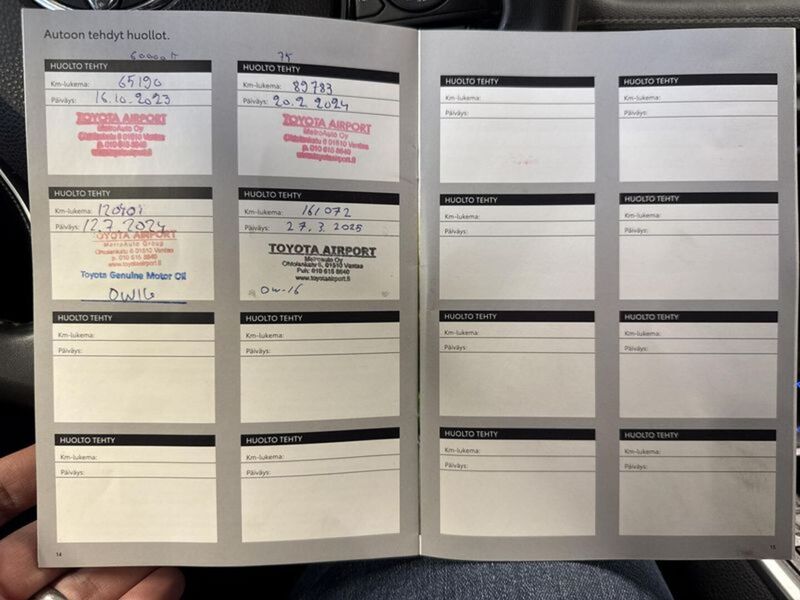 Autoon tehdyt huollot.
60000
HUOLTO TEHTY
Km-lukema: 65190
Päiväys: 16.10.2023
TOYOTA AIRPORT
MetroAuto Oy
Ohtolankatu 6 01510 Vantaa
p. 010 615 8640
www.toyotaairport.fi
75
HUOLTO TEHTY
Km-lukema: 89783
Päiväys: 20.2.2024
TOYOTA AIRPORT
MetroAuto Oy
Ohtolankatu 6 01510 Vantaa
p. 010 615 8640
www.toyotaairport.fi
HUOLTO TEHTY
Km-lukema:
Päiväys: 12.7.2024
TOYOTA AIRPORT
MetroAuto Group
Ohtolankatu 6 01510 Vantaa
p. 010 615 8640
www.toyotaairport.fi
Toyota Genuine Motor Oil
0W16
HUOLTO TEHTY
Km-lukema: 161072
Päiväys: 27.3.2025
TOYOTA AIRPORT
Metroauto Oy
Ohtolankatu 6, 01510 Vantaa
Puh: 010 615 8640
www.toyotaairport.fi
0W-16
HUOLTO TEHTY
Km-lukema:
Päiväys:
HUOLTO TEHTY
Km-lukema:
Päiväys:
HUOLTO TEHTY
Km-lukema:
Päiväys:
HUOLTO TEHTY
Km-lukema:
Päiväys:
14
HUOLTO TEHTY
Km-lukema:
Päiväys:
HUOLTO TEHTY
Km-lukema:
Päiväys:
HUOLTO TEHTY
Km-lukema:
Päiväys:
HUOLTO TEHTY
Km-lukema:
Päiväys:
HUOLTO TEHTY
Km-lukema:
Päiväys:
HUOLTO TEHTY
Km-lukema:
Päiväys:
HUOLTO TEHTY
Km-lukema:
Päiväys:
HUOLTO TEHTY
Km-lukema:
Päiväys:
15